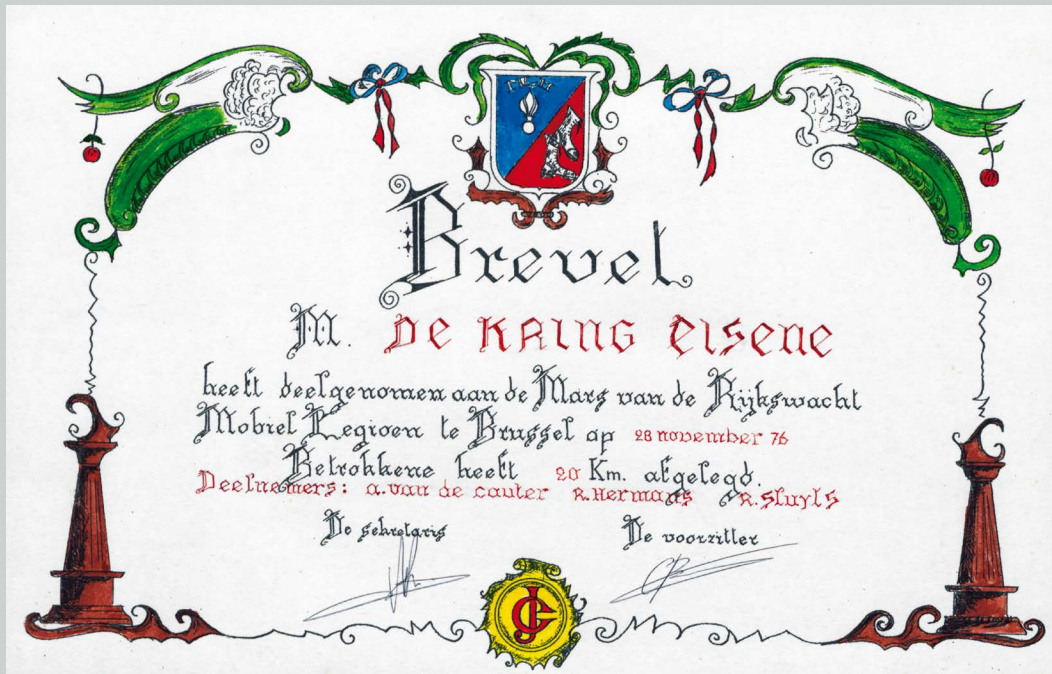 Brevet
M. DE KRING ELSENE
heeft deelgenomen aan de Mars van de Rijkswacht
Mobiel Legioen te Brussel op 28 november 76
Betrokkene heeft 20 Km. afgelegd.
Deelnemers: a.van de cauter R.Hermans R.Sluyts
De sekretaris De voorzitter